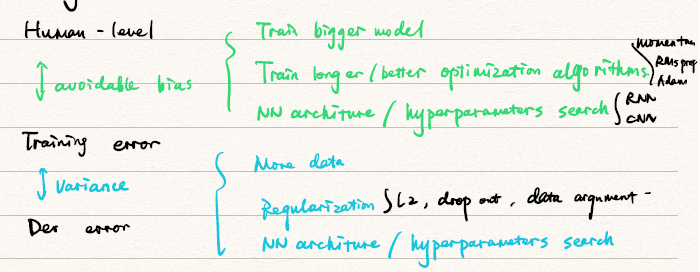 Human-level
Train bigger model
momentum
avoidable bias
Train longer/better optimization algorithms
RMsprop
Adam
NN architure / hyperparameters search
RNN
CNN
Training error
More data
Variance
Regularization L2, drop out, data argument -
Dev error
NN architure / hyperparameters search